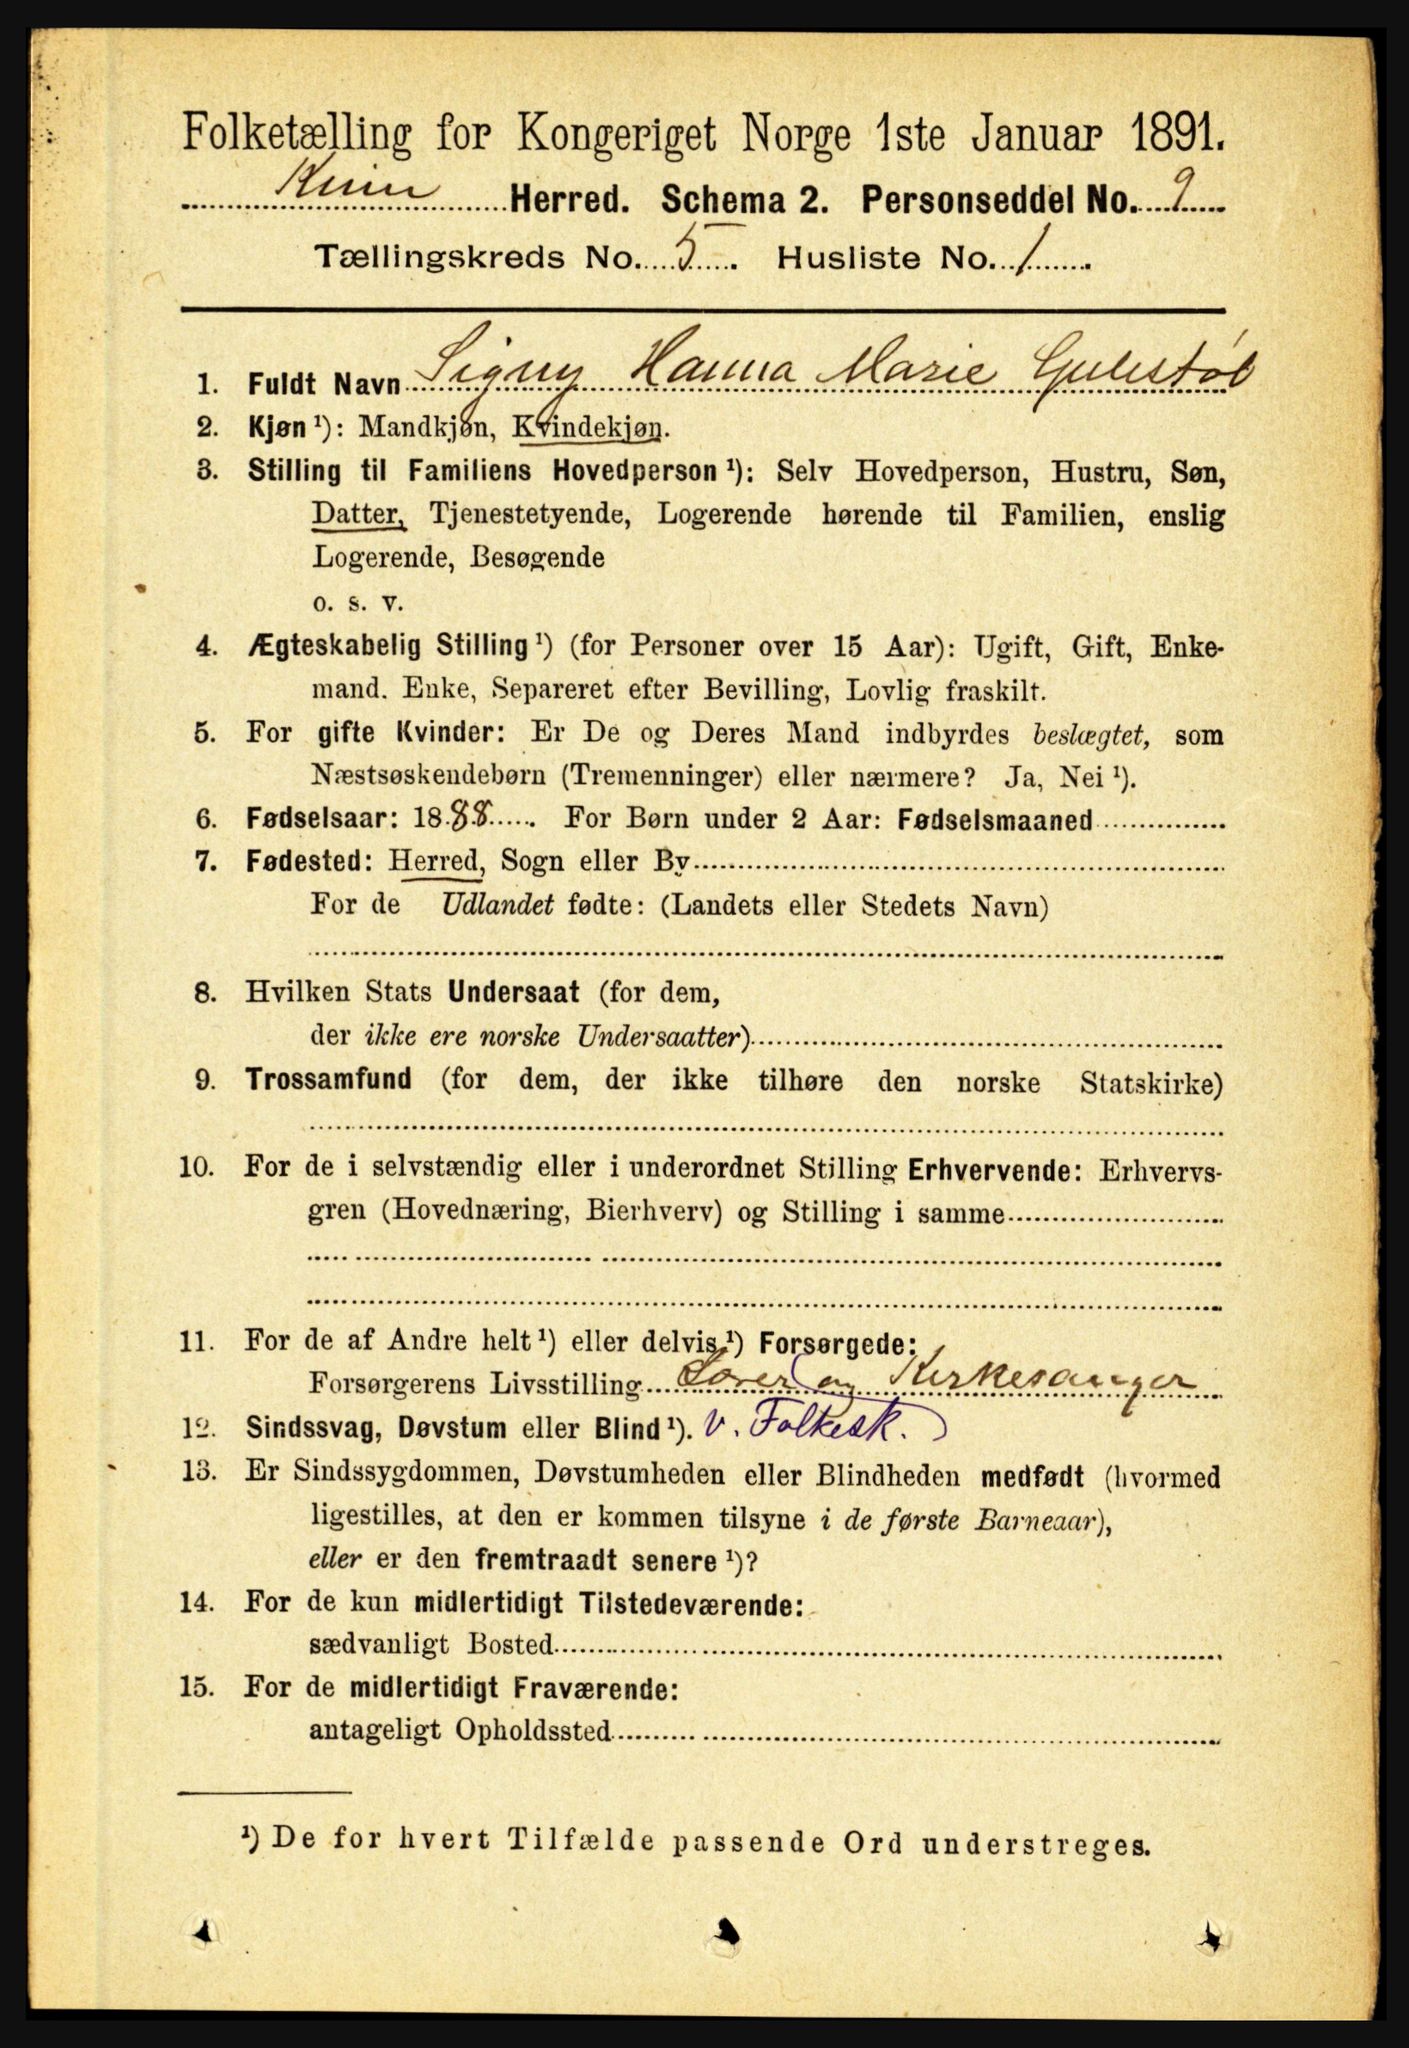 Folketælling for Kongeriget Norge 1ste Januar 1891.
Kinn Herred. Schema 2. Personseddel No. 9
Tællingskreds No. 5. Husliste No. 1
1. Fuldt Navn Signy Hanna Marie Gulestøl
2. Kjøn ¹): Mandkjøn, Kvindekjøn.
3. Stilling til Familiens Hovedperson ¹): Selv Hovedperson, Hustru, Søn,
Datter, Tjenestetyende, Logerende hørende til Familien, enslig
Logerende, Besøgende
o. s. v.
4. Ægteskabelig Stilling ¹) (for Personer over 15 Aar): Ugift, Gift, Enke-
mand. Enke, Separeret efter Bevilling, Lovlig fraskilt.
5. For gifte Kvinder: Er De og Deres Mand indbyrdes beslægtet, som
Næstsøskendebørn (Tremenninger) eller nærmere? Ja, Nei ¹).
6. Fødselsaar: 1888. For Børn under 2 Aar: Fødselsmaaned
7. Fødested: Herred, Sogn eller By
For de Udlandet fødte: (Landets eller Stedets Navn)
8. Hvilken Stats Undersaat (for dem,
der ikke ere norske Undersaatter)
9. Trossamfund (for dem, der ikke tilhøre den norske Statskirke)
10. For de i selvstændig eller i underordnet Stilling Erhvervende: Erhvervs-
gren (Hovednæring, Bierhverv) og Stilling i samme
11. For de af Andre helt ¹) eller delvis ¹) Forsørgede:
Forsørgerens Livsstilling Lærer og Kirkesanger
12. Sindssvag, Døvstum eller Blind ¹). v. Folkesk.
13. Er Sindssygdommen, Døvstumheden eller Blindheden medfødt (hvormed
ligestilles, at den er kommen tilsyne i de første Barneaar),
eller er den fremtraadt senere ¹)?
14. For de kun midlertidigt Tilstedeværende:
sædvanligt Bosted
15. For de midlertidigt Fraværende:
antageligt Opholdssted
¹) De for hvert Tilfælde passende Ord understreges.